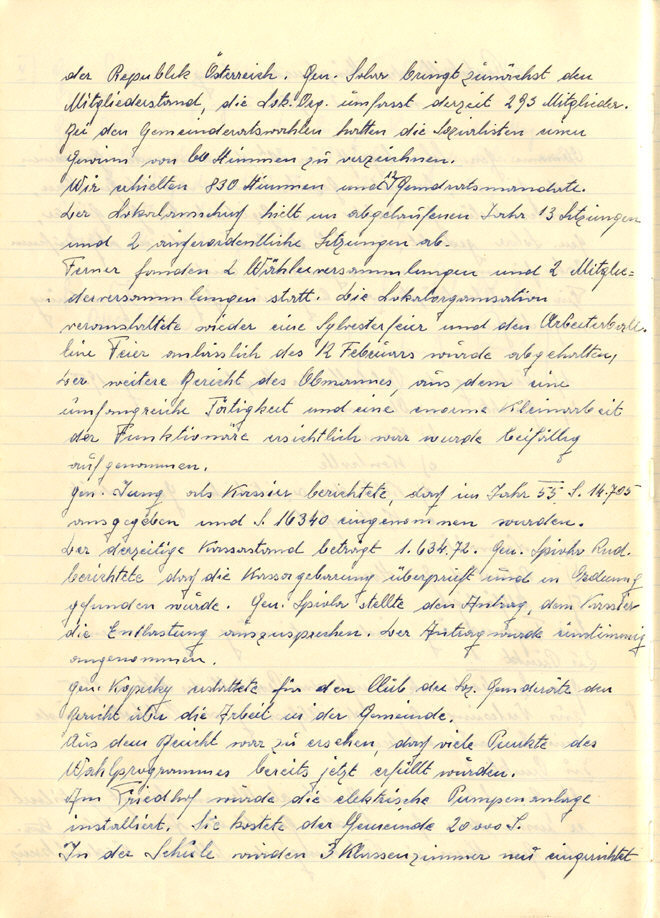 der Republik Österreich. Gen. Sohor bringt zunächst den
Mitgliederstand, die Lok. Org. umfasst derzeit 293 Mitglieder.
Bei den Gemeinderatswahlen hatten die Sozialisten einen
Gewinn von 60 Stimmen zu verzeichnen.
Wir erhielten 830 Stimmen und 17 Gemdratsmandate.
Der Lokalausschuß hielt im abgelaufenen Jahr 13 Sitzungen
und 2 außerordentliche Sitzungen ab.
Ferner fanden 2 Wählerversammlungen und 2 Mitglie=
derversammlungen statt. Die Lokalorganisation
veranstaltete wieder eine Sylvesterfeier und den Arbeiterball.
Eine Feier anlässlich des 12 Februars wurde abgehalten,
Der weitere Bericht des Obmannes, aus dem eine
umfangreiche Tätigkeit und eine enorme Kleinarbeit
der Funktionäre ersichtlich war wurde beifällig
aufgenommen.
Gen. Jung als Kassier berichtete, daß im Jahr 55 S. 14.705
ausgegeben und S. 16340 eingenommen wurden.
Der derzeitige Kassastand beträgt 1.634.72. Gen. Rud.
berichtete daß die Kassagebarung überprüft und in Ordnung
gefunden wurde. Gen. stellte den Antrag, dem Kassier
die Entlastung auszusprechen. Der Antrag wurde einstimmig
angenommen.
Gen. erstattete für den Club der Soz. Gemderäte den
Bericht über die Arbeit in der Gemeinde.
Aus dem Bericht war zu ersehen, daß viele Punkte des
Wahlprogrammes bereits jetzt erfüllt wurden.
Am Friedhof wurde die elektrische Pumpenanlage
installiert. Sie kostete der Gemeinde 20000 S.
In der Schule wurden 3 Klassenzimmer neu eingerichtet